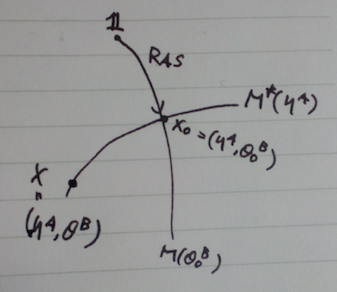 𝟙
RAS
M*(η^A)
x₀ = (η^A, θ₀^B)
X
"
(η^A, θ^B)
M(θ₀^B)